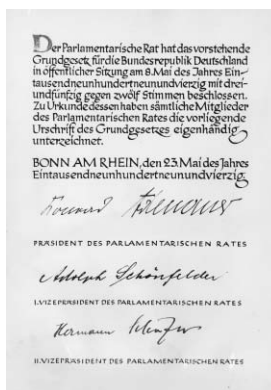 Der Parlamentarische Rat hat das vorstehende
Grundgesetz für die Bundesrepublik Deutschland
in öffentlicher Sitzung am 8. Mai des Jahres Ein-
tausendneunhundertneunundvierzig mit drei-
undfünfzig gegen zwölf Stimmen beschlossen.
Zu Urkunde dessen haben sämtliche Mitglieder
des Parlamentarischen Rates die vorliegende
Urschrift des Grundgesetzes eigenhändig
unterzeichnet.
BONN AM RHEIN, den 23. Mai des Jahres
Eintausendneunhundertneunundvierzig
Konrad Adenauer
PRÄSIDENT DES PARLAMENTARISCHEN RATES
Adolph Schönfelder
I. VIZEPRÄSIDENT DES PARLAMENTARISCHEN RATES
Hermann Schäfer
II. VIZEPRÄSIDENT DES PARLAMENTARISCHEN RATES